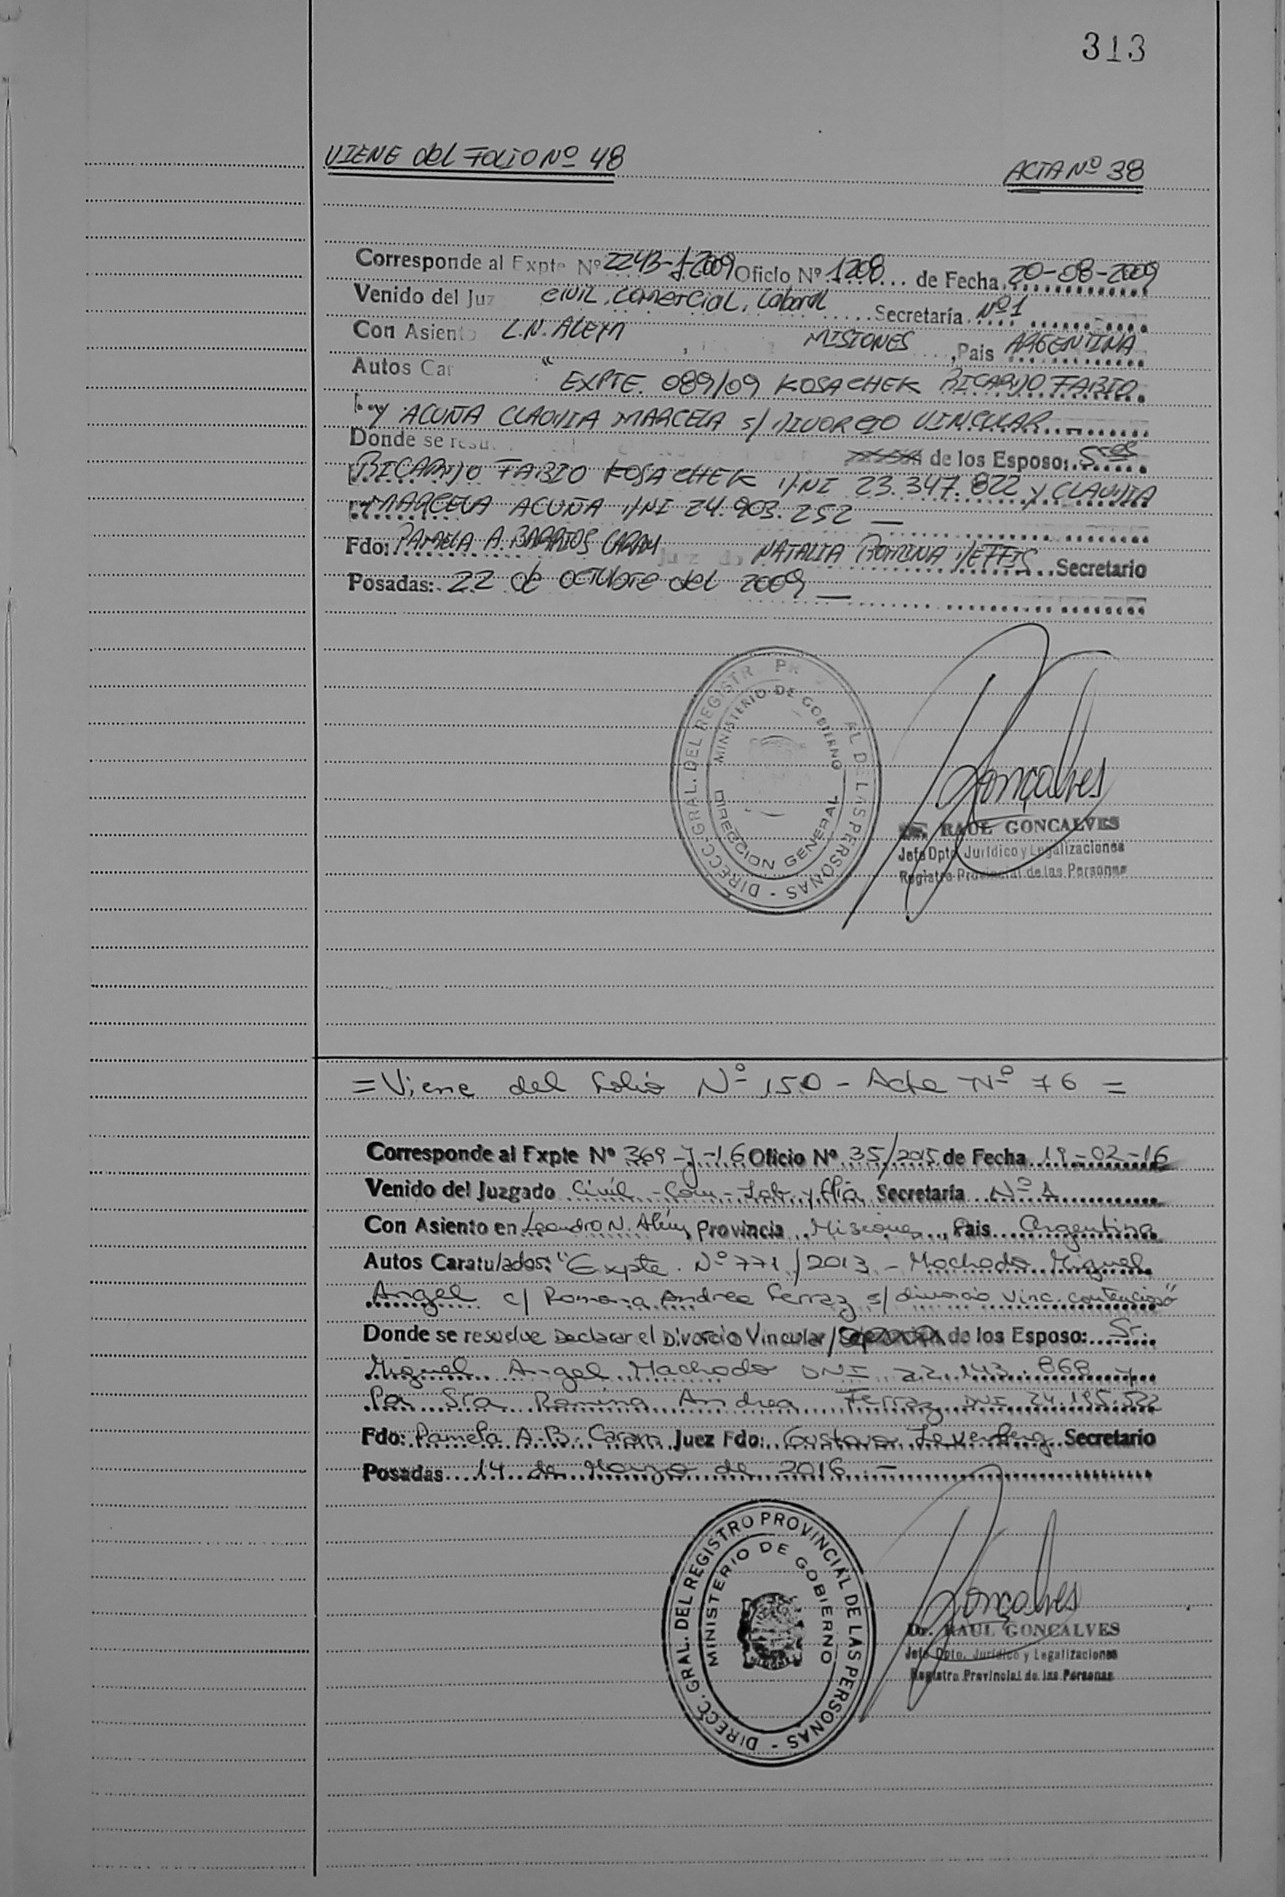 313
VIENE del FOLIO Nº 48
ACTA Nº 38
Corresponde al Expte Nº 2243-J-2009 Oficio Nº 1208 de Fecha 20-08-2009
Venido del Juz civil, comercial, laboral Secretaría Nº 1
Con Asient L.N. ALEM MISIONES, Pais ARGENTINA
Autos Car " EXPTE. 089/09 KOSACHEK RICARDO FABIO
y ACUÑA CLAUDIA MARCELA s/ DIVORCIO VINCULAR
Donde se resu de los Esposo: Sres
RICARDO FABIO KOSACHEK DNI 23.347.822 y CLAUDIA
MARCELA ACUÑA DNI 24.903.252
Fdo: PAMELA A. BARRIOS CARAM NATALIA ROMINA Secretario
Posadas: 22 de OCTUBRE del 2009
DIRECC. GRAL. DEL REGISTR PR AL DE LAS PERSONAS
MINISTERIO DE GOBIERNO
DIRECCION GENERAL
Gonçalves
RAUL GONCALVES
Jefe Dpto. Jurídico y Legalizaciones
Registro Provincial de las Personas
= Viene del folio Nº 150 - Acta Nº 76 =
Corresponde al Expte Nº 369-J-16 Oficio Nº 35/2015 de Fecha 19-02-16
Venido del Juzgado Civil - Com - Lab. y flia Secretaría Nº 1
Con Asiento en Leandro N. Além, Provincia Misiones, Pais Argentina
Autos Caratulados: "Expte. Nº 771/2013 - Machado Miguel
Angel c/ Romina Andrea Ferraz s/ divorcio Vinc. contencioso"
Donde se resuelve Declarar el Divorcio Vincular/ de los Esposo: Sr.
Miguel Angel Machado DNI 22.143.868 y
Sra Romina Andrea Ferraz DNI 24.195.522
Fdo: Pamela A.B. Caram Juez Fdo: Gustavo Secretario
Posadas 14 de Marzo de 2016
DIRECC. GRAL. DEL REGISTRO PROVINCIAL DE LAS PERSONAS
MINISTERIO DE GOBIERNO
Gonçalves
Dr. RAUL GONCALVES
Jefe Dpto. Jurídico y Legalizaciones
Registro Provincial de las Personas